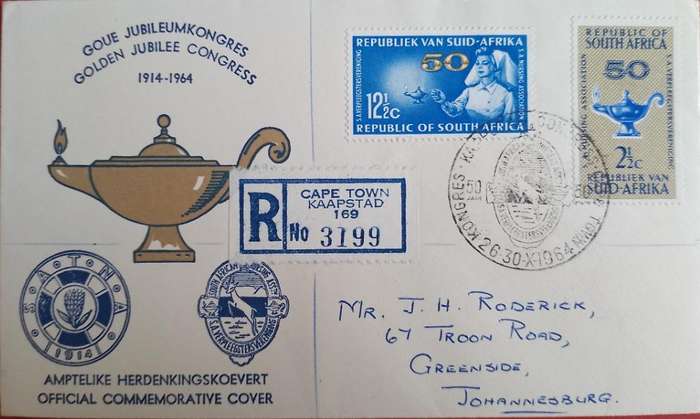 GOUE JUBILEUMKONGRES
GOLDEN JUBILEE CONGRESS
1914-1964
REPUBLIEK VAN SUID-AFRIKA
50
S.A. VERPLEEGSTERSVERENIGING
S.A. NURSING ASSOCIATION
12½c
REPUBLIC OF SOUTH AFRICA
REPUBLIC OF
SOUTH AFRICA
50
S.A. NURSING ASSOCIATION
S.A. VERPLEEGSTERSVERENIGING
2½c
REPUBLIEK VAN
SUID-AFRIKA
KONGRES
50
JAAR
50
26-30-X-1964
R
CAPE TOWN
KAAPSTAD
169
No 3199
S.A.T.N.A.
1914
SOUTH AFRICAN NURSING ASSN
MR. J. H. RODERICK,
67 TROON ROAD,
GREENSIDE,
JOHANNESBURG.
AMPTELIKE HERDENKINGSKOEVERT
OFFICIAL COMMEMORATIVE COVER